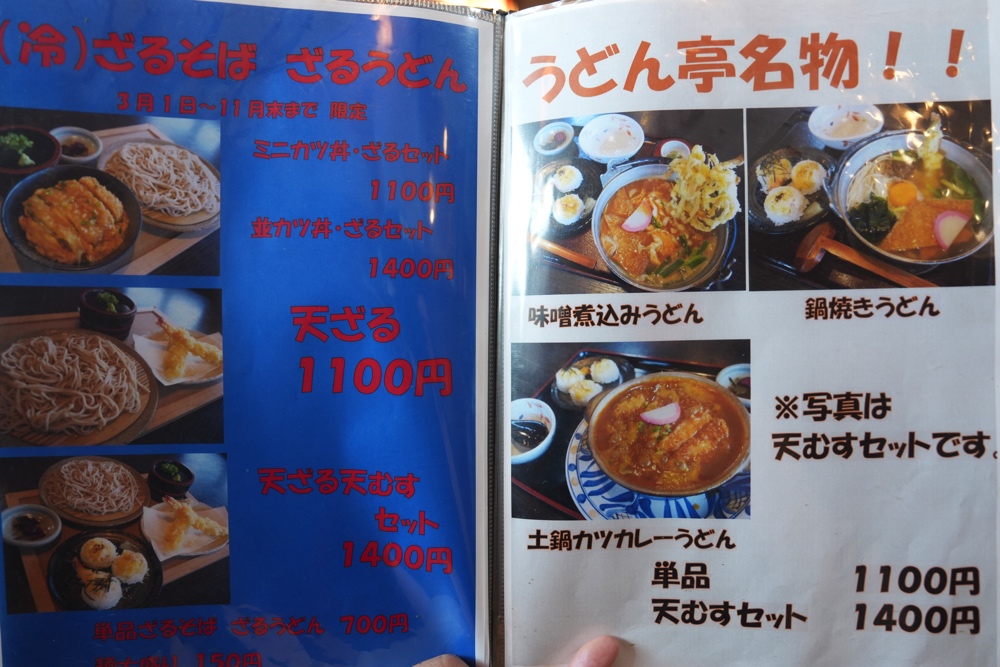 （冷）ざるそば ざるうどん
3月1日～11月末まで 限定
ミニカツ丼・ざるセット
1100円
並カツ丼・ざるセット
1400円
天ざる
1100円
天ざる天むす
セット
1400円
単品ざるそば ざるうどん 700円
150円
うどん亭名物！！
味噌煮込みうどん
鍋焼きうどん
※写真は
天むすセットです。
土鍋カツカレーうどん
単品 1100円
天むすセット 1400円